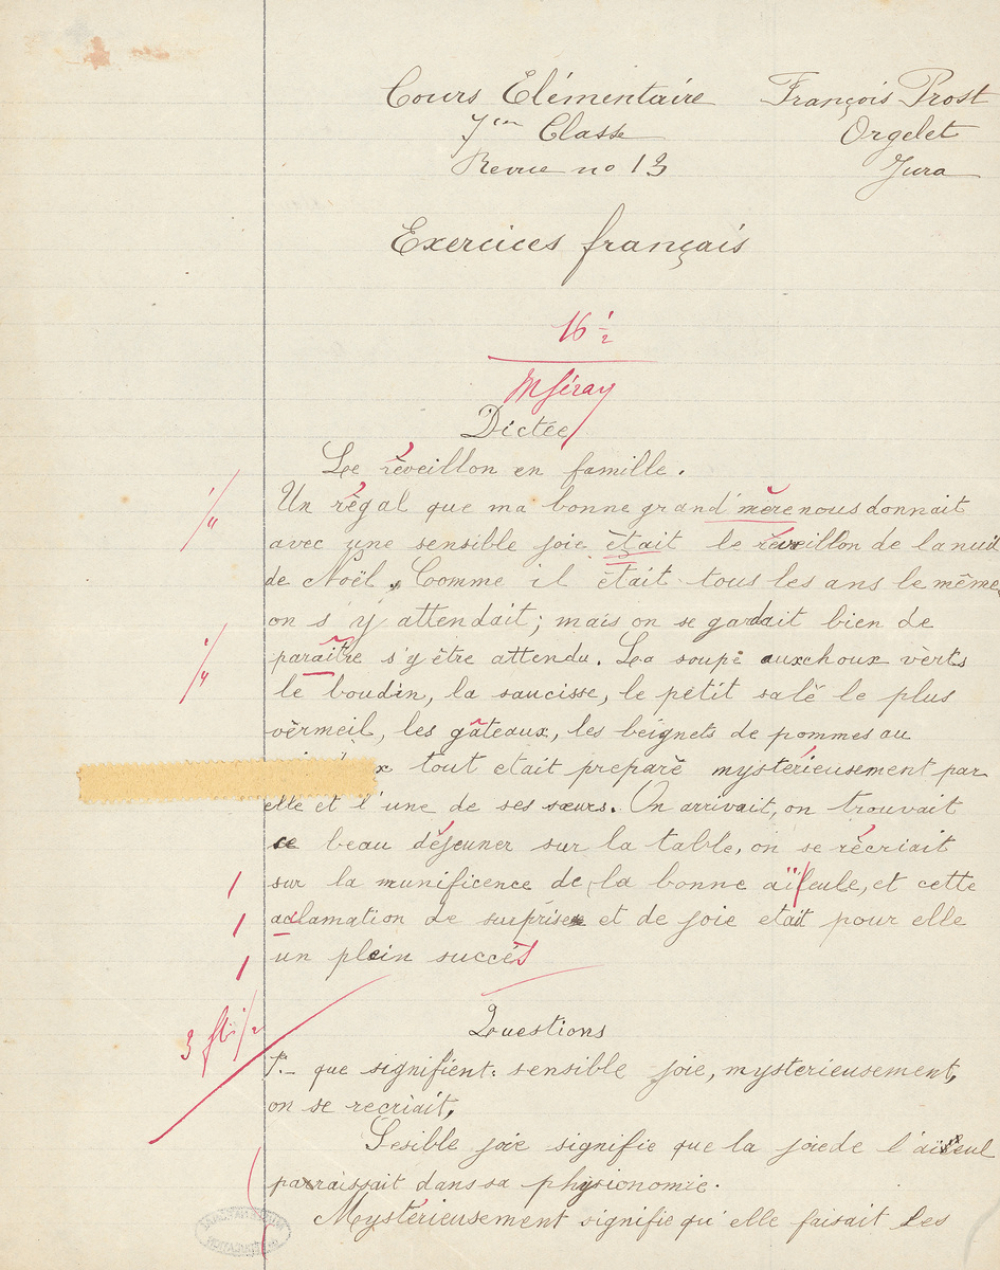 Cours Elémentaire François Prost
7em Classe Orgelet
Revue no 13 Jura
Exercices français
16 1/2
Dictée
Le rèveillon en famille.
Un règal que ma bonne grand'mère nous donnait
avec une sensible joie ètait le rèveillon de la nuit
de Noël. Comme il ètait tous les ans le même
on s'y attendait; mais on se gardait bien de
paraître s'y être attendu. La soupe aux choux vèrts
le boudin, la saucisse, le petit salè le plus
vèrmeil, les gâteaux, les beignets de pommes au
tout etait preparè mystérieusement par
elle et l'une de ses sœurs. On arrivait, on trouvait
ce beau déjeuner sur la table, on se rècriait
sur la munificence de la bonne aïeule, et cette
aclamation de surprise et de joie etait pour elle
un plein succès
3 f 1/2
Questions
1.- que signifient: sensible joie, mysterieusement,
on se recriait,
Sesible joie signifie que la joie de l'aïeul
parraissait dans sa physionomie.
Mystérieusement signifie qu'elle faisait les